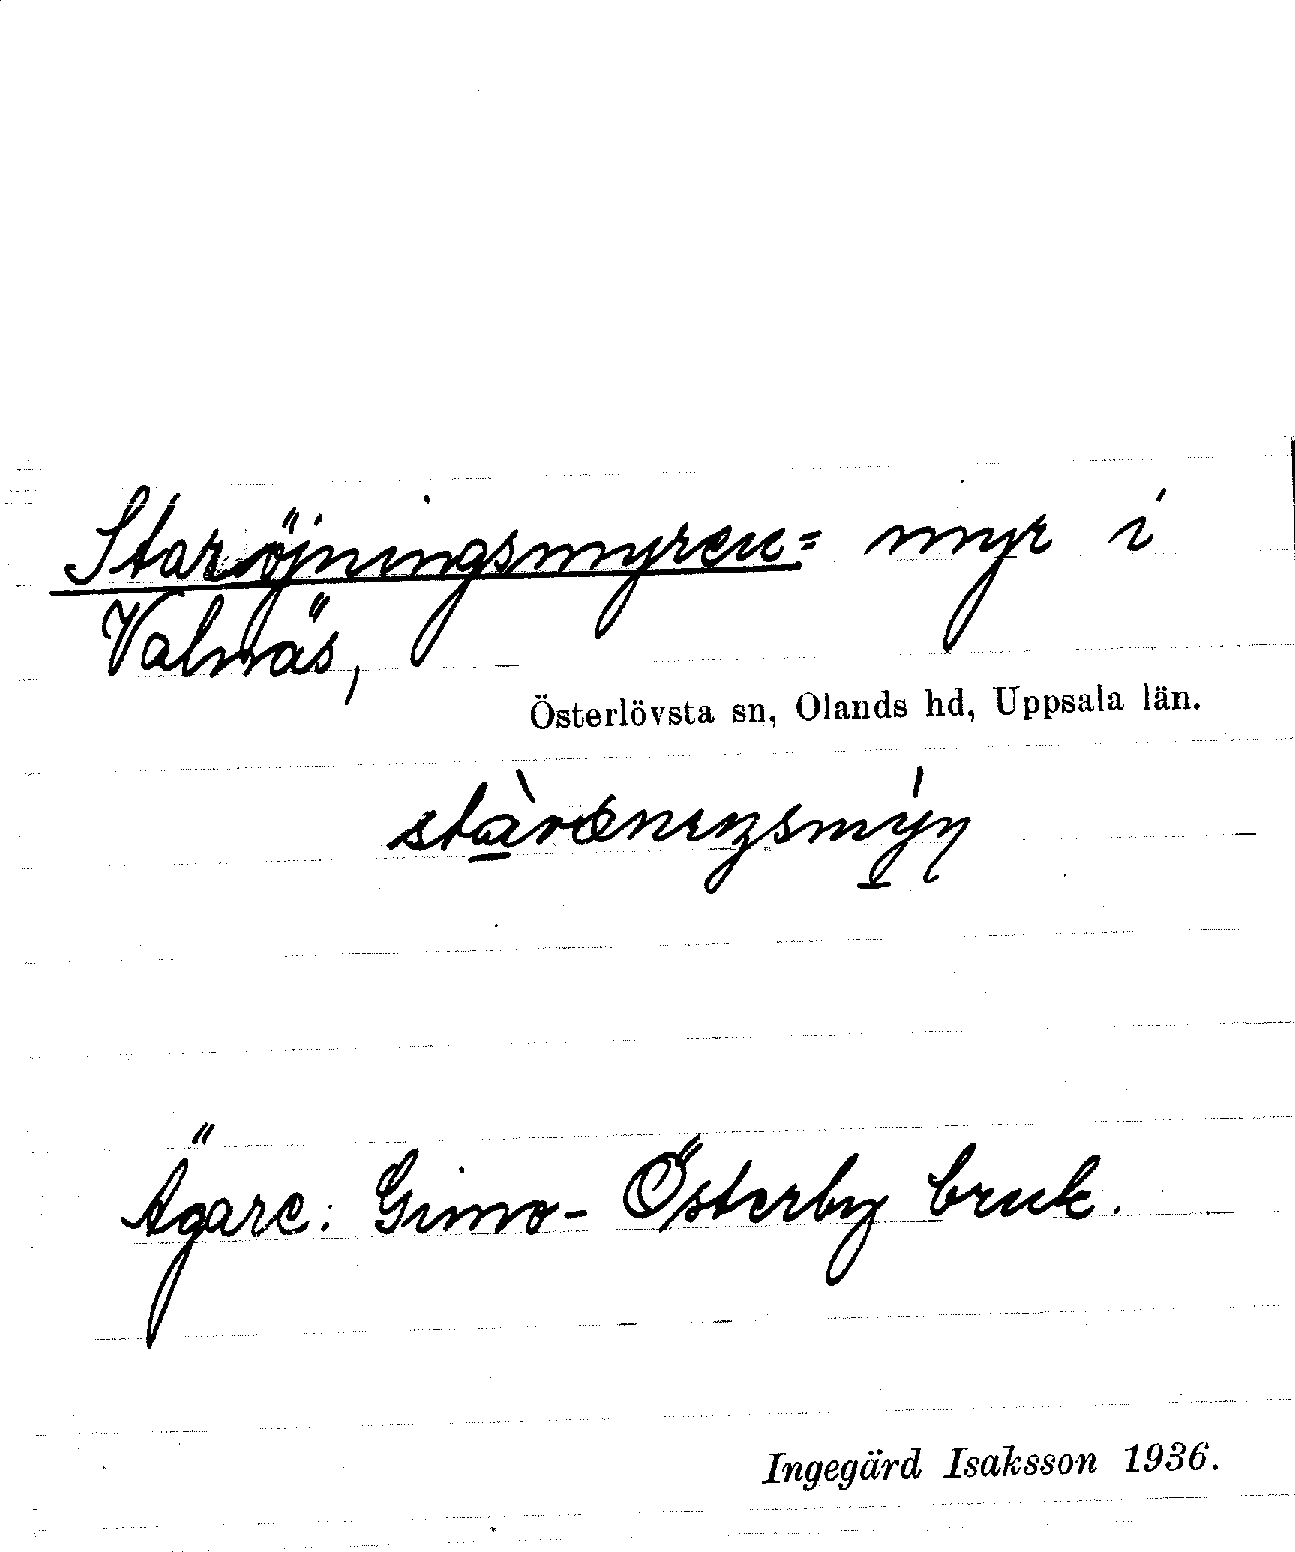 Staröjningsmyren = myr i
Valnäs,
Österlövsta sn, Olands hd, Uppsala län.
Ägare: Gimo-Österby bruk.
Ingegärd Isaksson 1936.